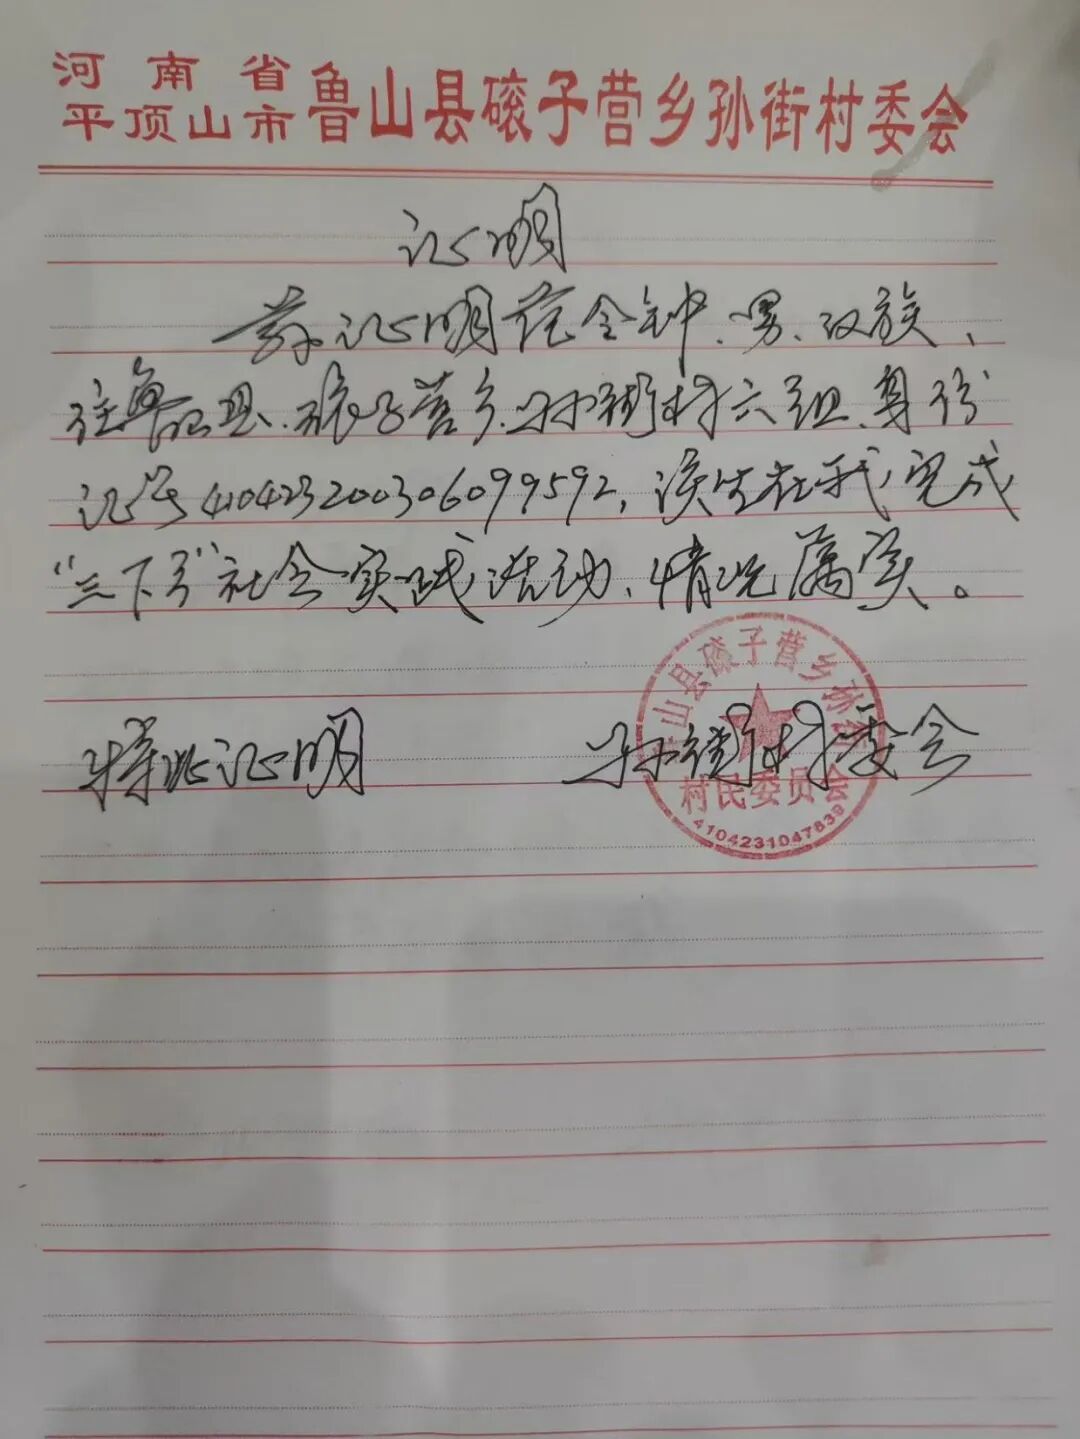 河南省
平顶山市
鲁山县磙子营乡孙街村委会
证明
兹证明范金钟、男、汉族、
住鲁山县、磙子营乡、孙街村六组、身份
证号410423200306099592，该生在我完成
“三下乡”社会实践活动、情况属实。
特此证明
孙街村委会
山县磙子营乡孙街
村民委员会
4104231047839